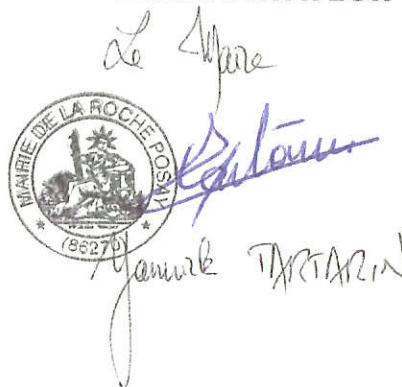 Le Maire
MAIRIE DE LA ROCHE POSAY
(86270)
Yannick TARTARIN